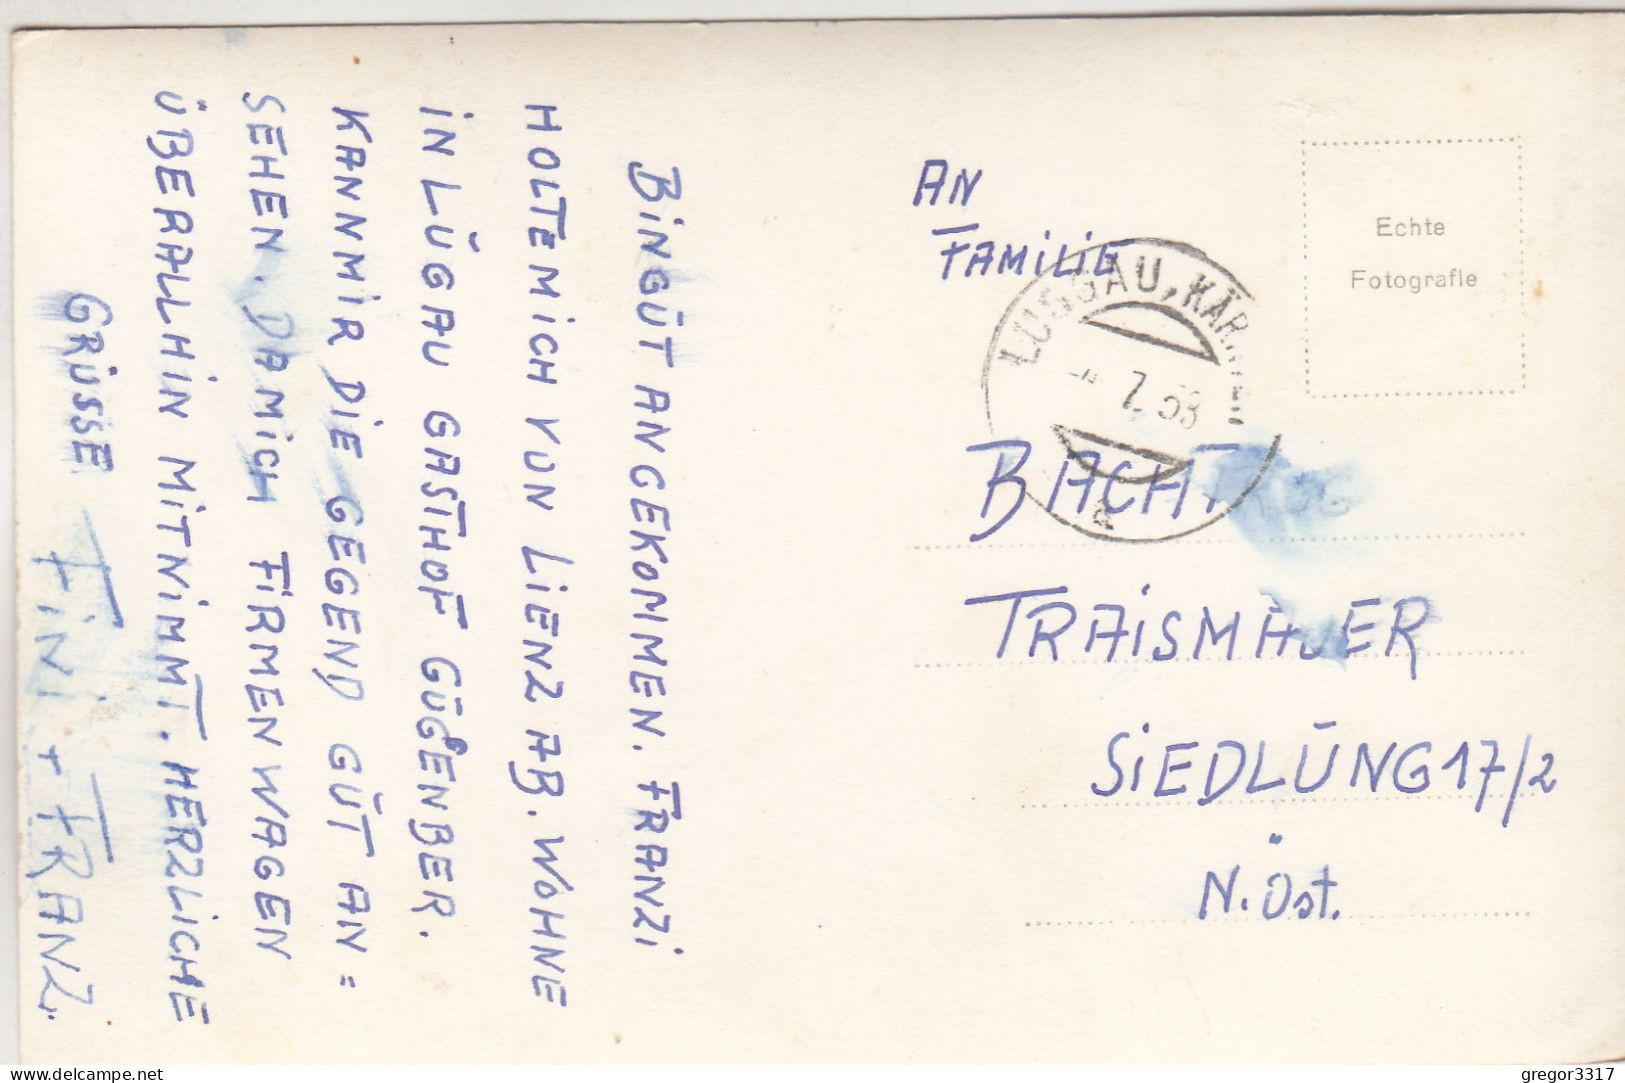 BIN GŪT ANGEKOMMEN. FRANZI
HOLTE MICH VON LIENZ AB. WOHNE
IN LŪGAU GASTHOF GŪGENBER.
KANN MIR DIE GEGEND GŪT AN=
SEHEN. DA MICH FIRMENWAGEN
ÜBERALLHIN MITNIMMT. HERZLICHE
GRÜSSE FINI + FRANZ.
Echte
Fotografie
AN
FAMILIE
LUGGAU, KÄRNTEN
7.
a
TRAISMAUER
SIEDLŪNG 17/2
N. Öst.
www.delcampe.net
gregor3317